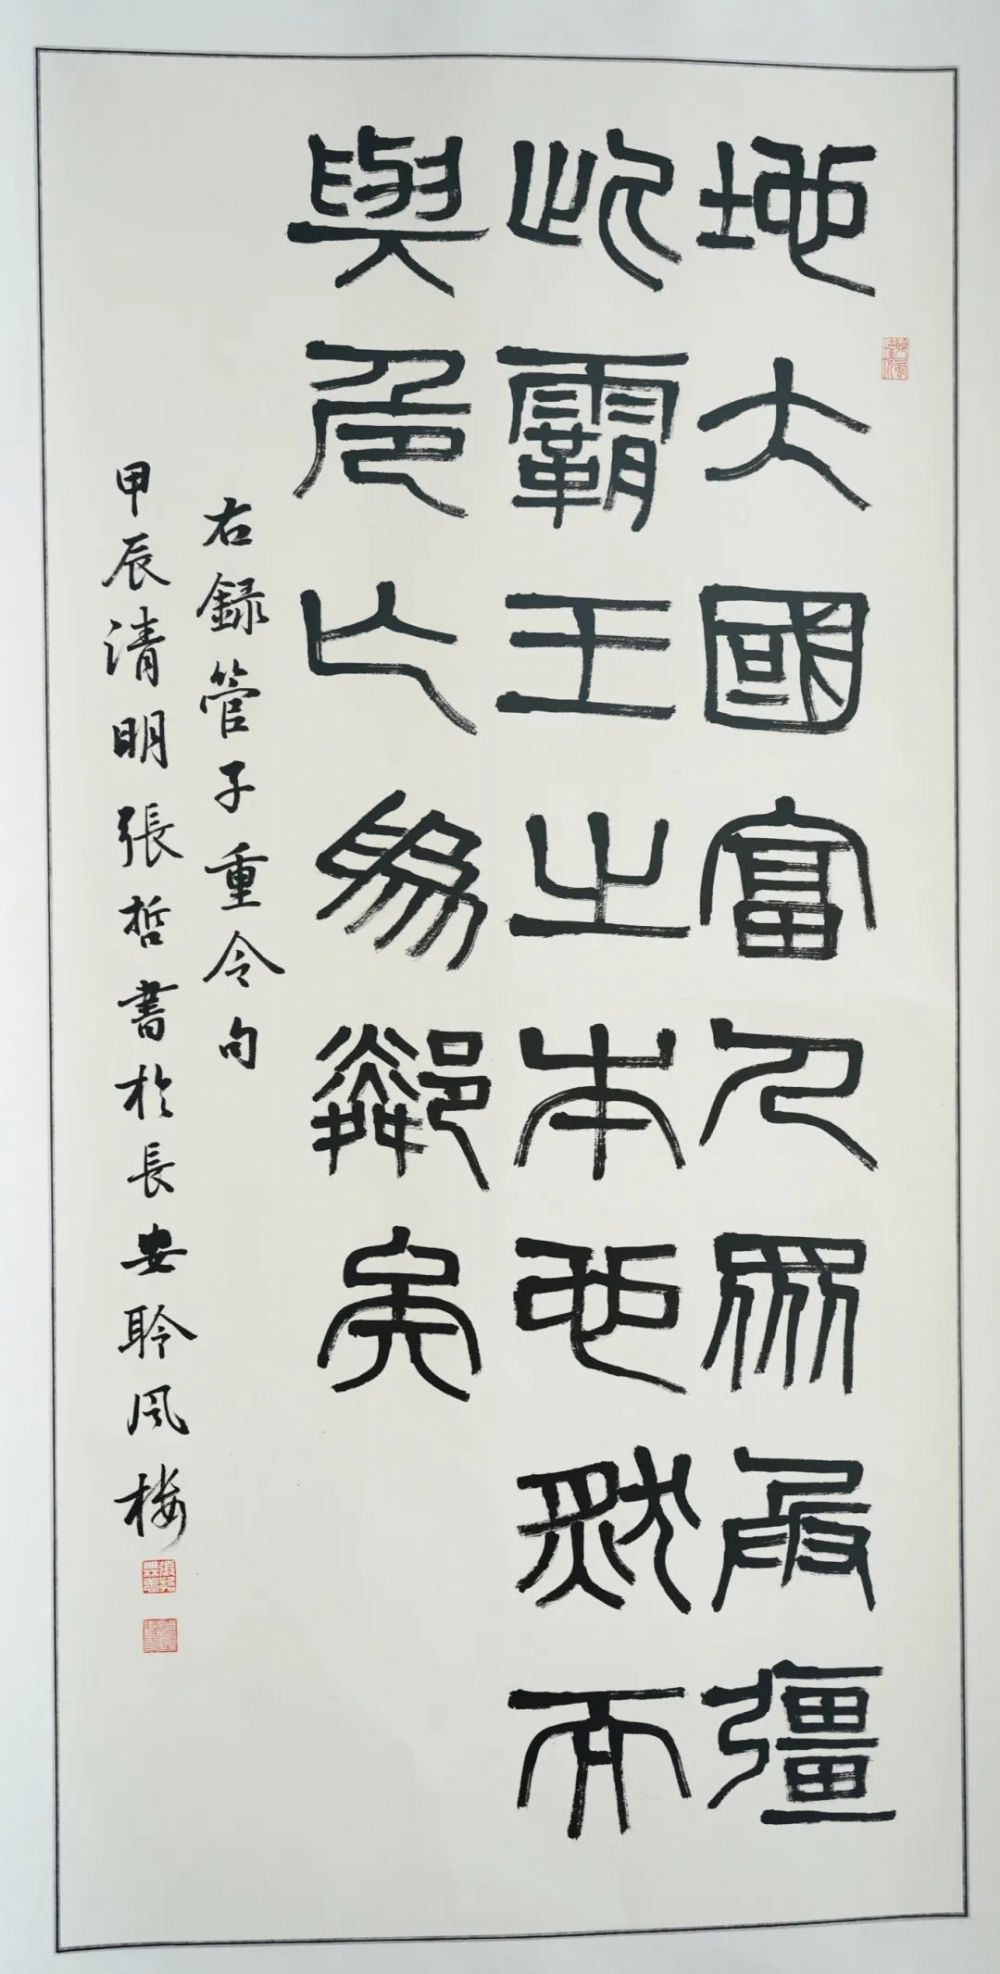 地大國富人眾兵彊
此霸王之本也然而
與危亡為鄰矣
右録管子重令句
甲辰清明張哲書於長安聆风楼